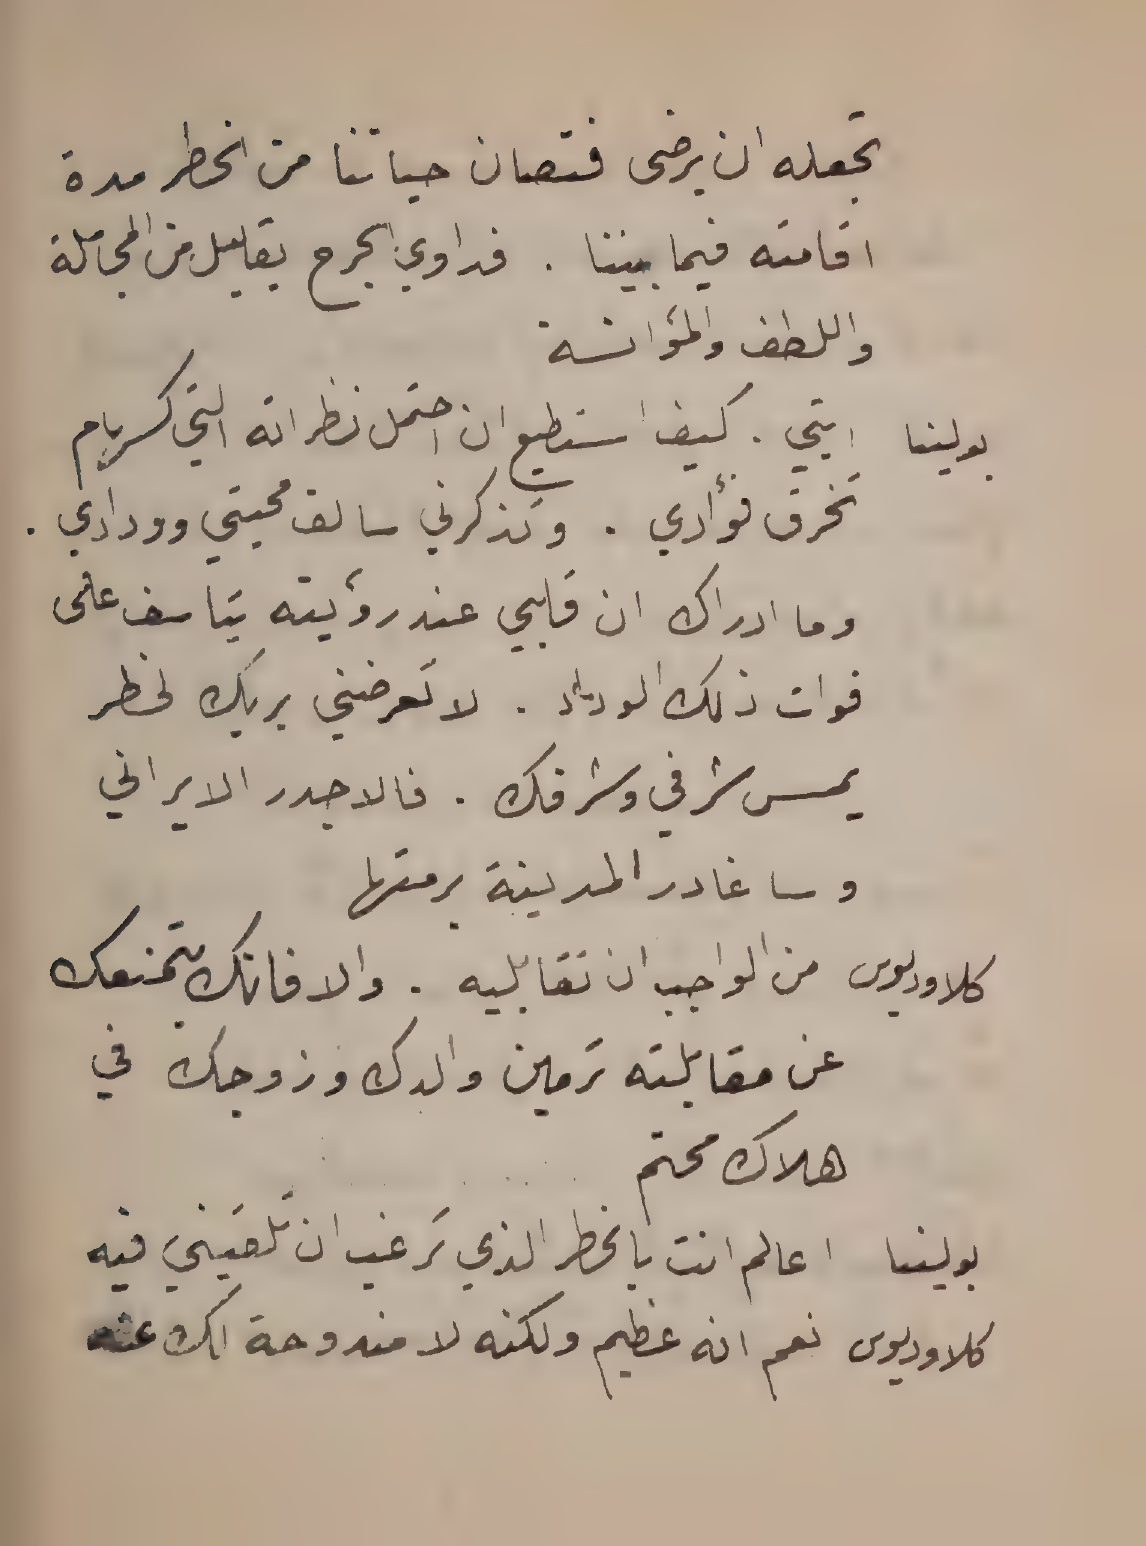 تجعله ان يرضى فتصان حياتنا من الخطر مدة
اقامته فيما بيننا . فداوي الجرح بقليل من المجاملة
واللطف والمؤانسة
بولينا ابتي . كيف استطيع ان احتمل نظراته التي كسهام
تخرق فؤادي . وتذكرني سالف محبتي وودادي .
وما ادراك ان قلبي عند رؤيته يتاسف على
فوات ذلك الوداد . لا تعرضني بربك لخطر
يمس شرفي وشرفك . فالاجدر الا يراني
وساغادر المدينة برمتها
كلاوديوس من الواجب ان تقابليه . والا فانك بتمنعك
عن مقابلته ترمين والدك وزوجك في
هلاك محتم
بولينا اعالم انت بالخطر الذي ترغب ان تلقيني فيه
كلاوديوس نعم انه عظيم ولكنه لا مندوحة لك عنه